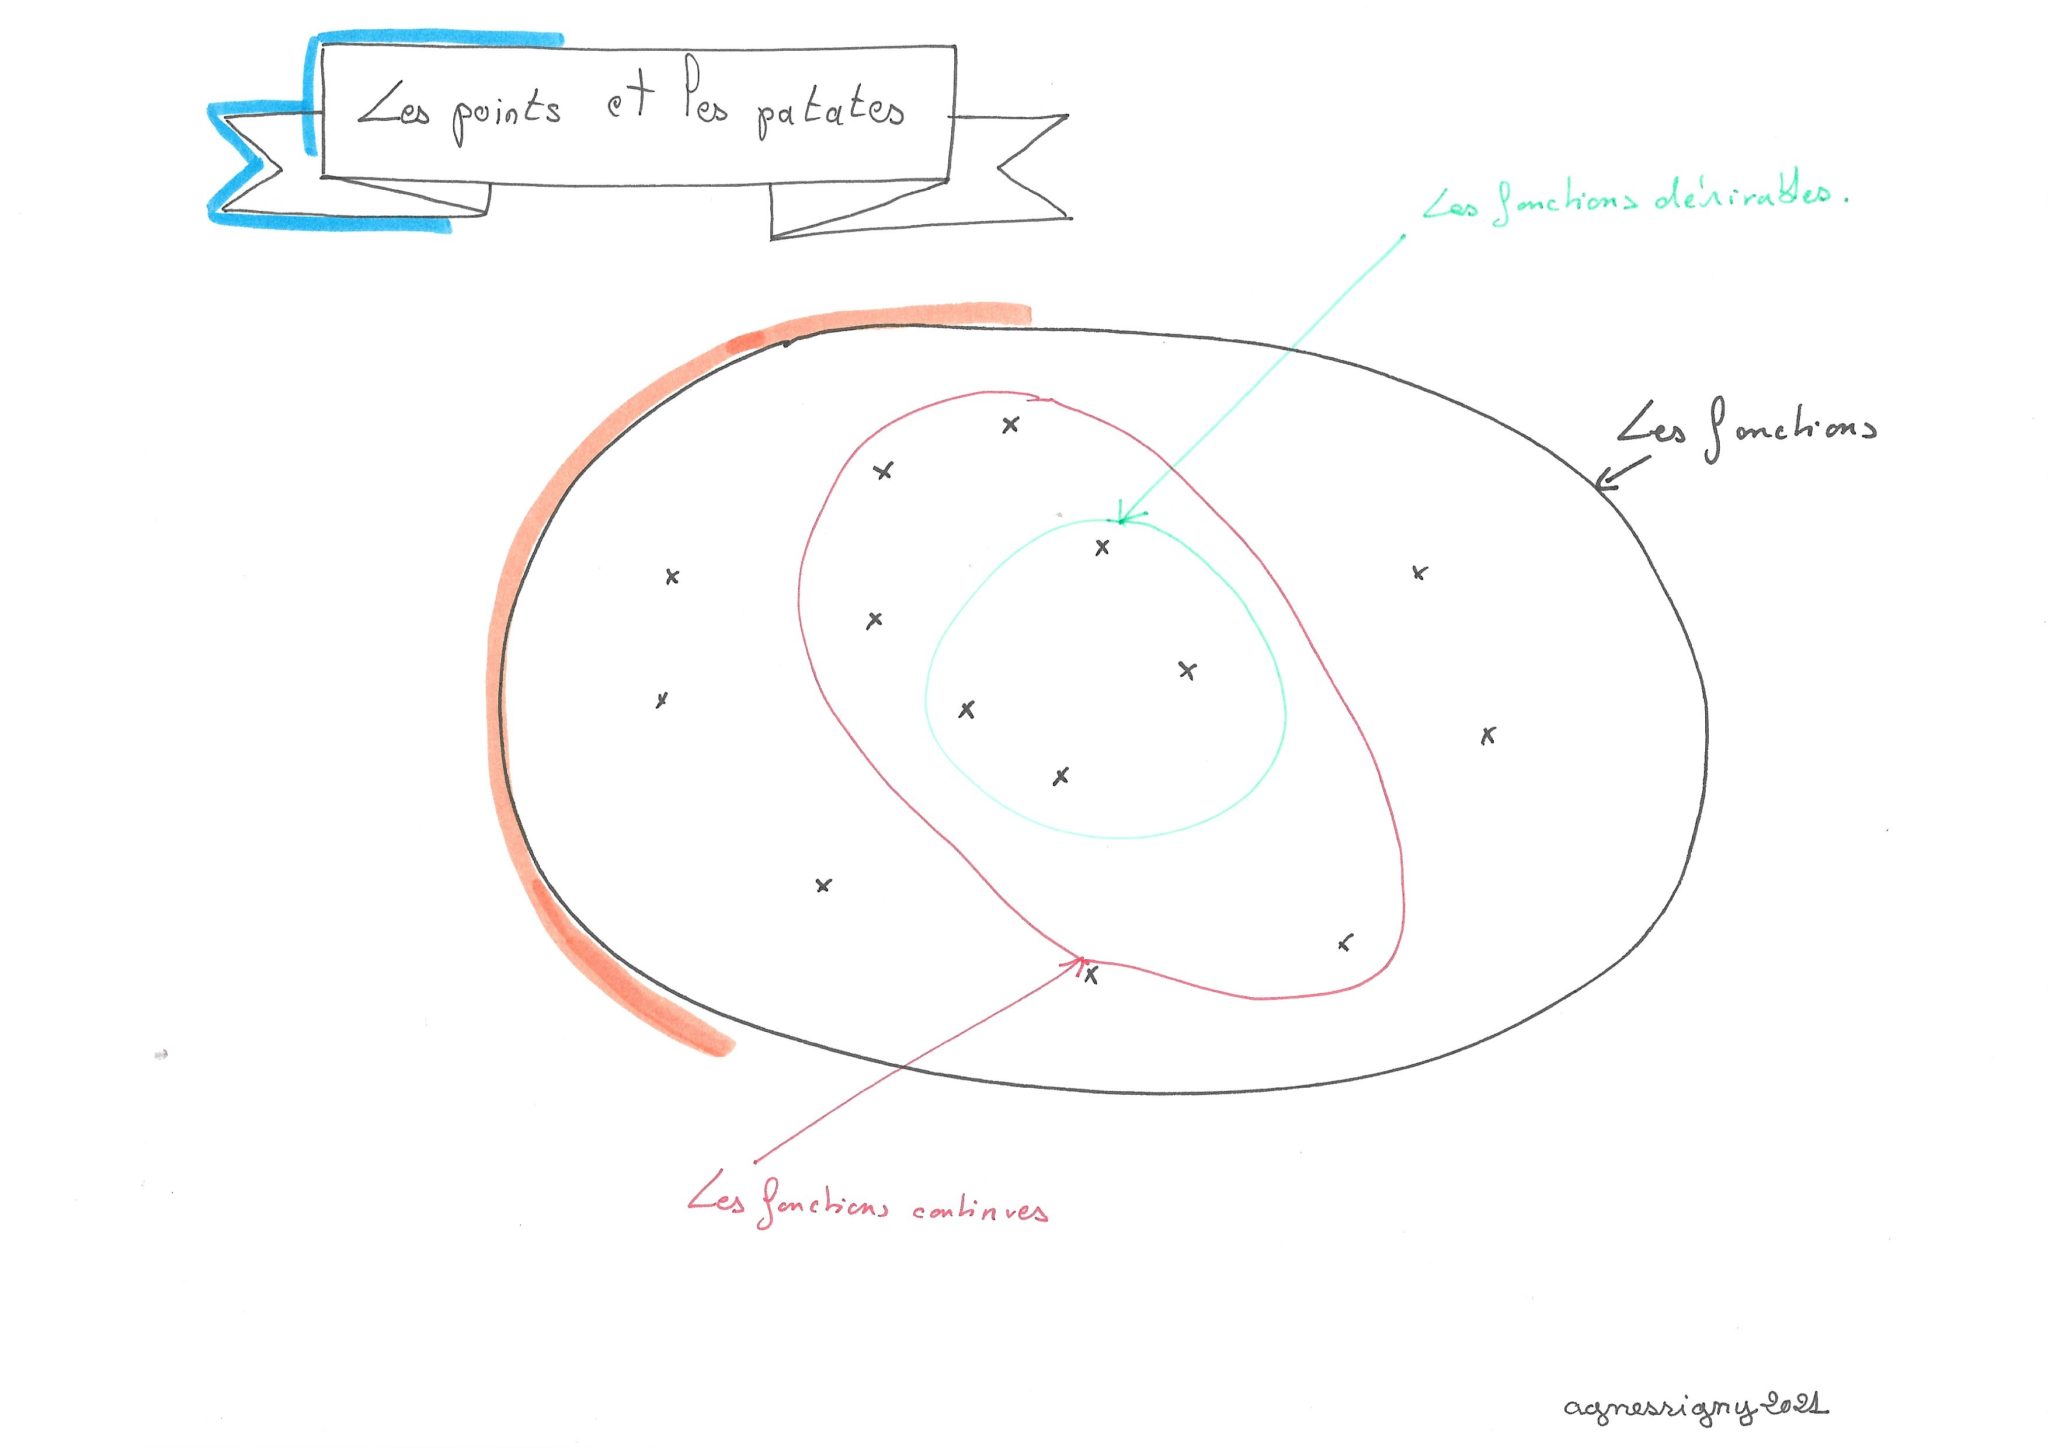 Les points et les patates
Les fonctions dérivables.
Les fonctions
Les fonctions continues
agnesrigny 2021